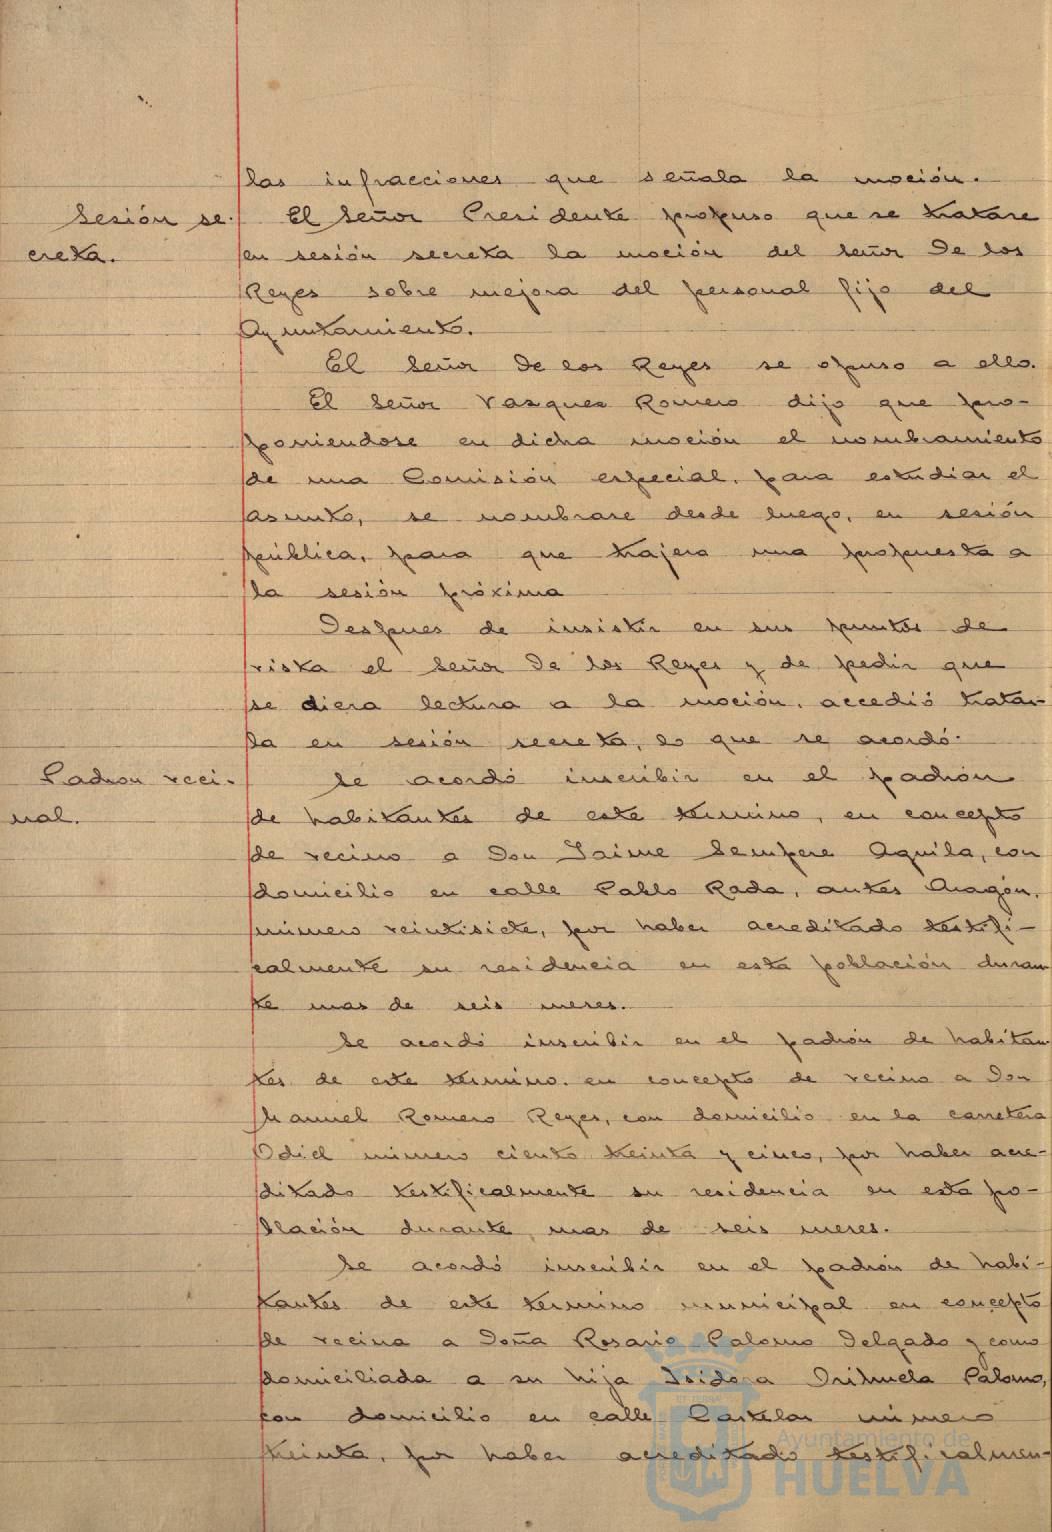 las infracciones que señala la moción.
Sesión se-
creta.
El Señor Presidente propuso que se tratare
en sesión secreta la moción del Señor De los
Reyes sobre mejora del personal fijo del
Ayuntamiento.
El Señor De los Reyes se opuso a ello.
El Señor Vazquez Romero dijo que pro-
poniendose en dicha moción el nombramiento
de una Comisión especial, para estudiar el
asunto, se nombrase desde luego, en sesión
pública, para que trajera una propuesta a
la sesión próxima
Despues de insistir en sus puntos de
vista el Señor De los Reyes y de pedir que
se diera lectura a la moción, accedió tratar-
la en sesión secreta, lo que se acordó.
Padron veci-
nal.
Se acordó inscribir en el padrón
de habitantes de este termino, en concepto
de vecino a Don Jaime Sempere Aquila, con
domicilio en calle Pablo Rada, antes Aragón,
número veintisiete, por haber acreditado testifi-
calmente su residencia en esta población duran
te mas de seis meses.
Se acordó inscribir en el padrón de habitan
tes de este termino, en concepto de vecino a Don
Manuel Romero Reyes, con domicilio en la carretera
Odiel número ciento treinta y cinco, por haber acre-
ditado testificalmente su residencia en esta po-
blación durante mas de seis meses.
Se acordó inscribir en el padrón de habi-
tantes de este termino municipal en concepto
de vecina a Doña Rosario Palomo Delgado y como
domiciliada a su hija Isidora Orihuela Palomo,
con domicilio en calle Castelar número
treinta, por haber acreditado testificalmen-
Ayuntamiento de
HUELVA